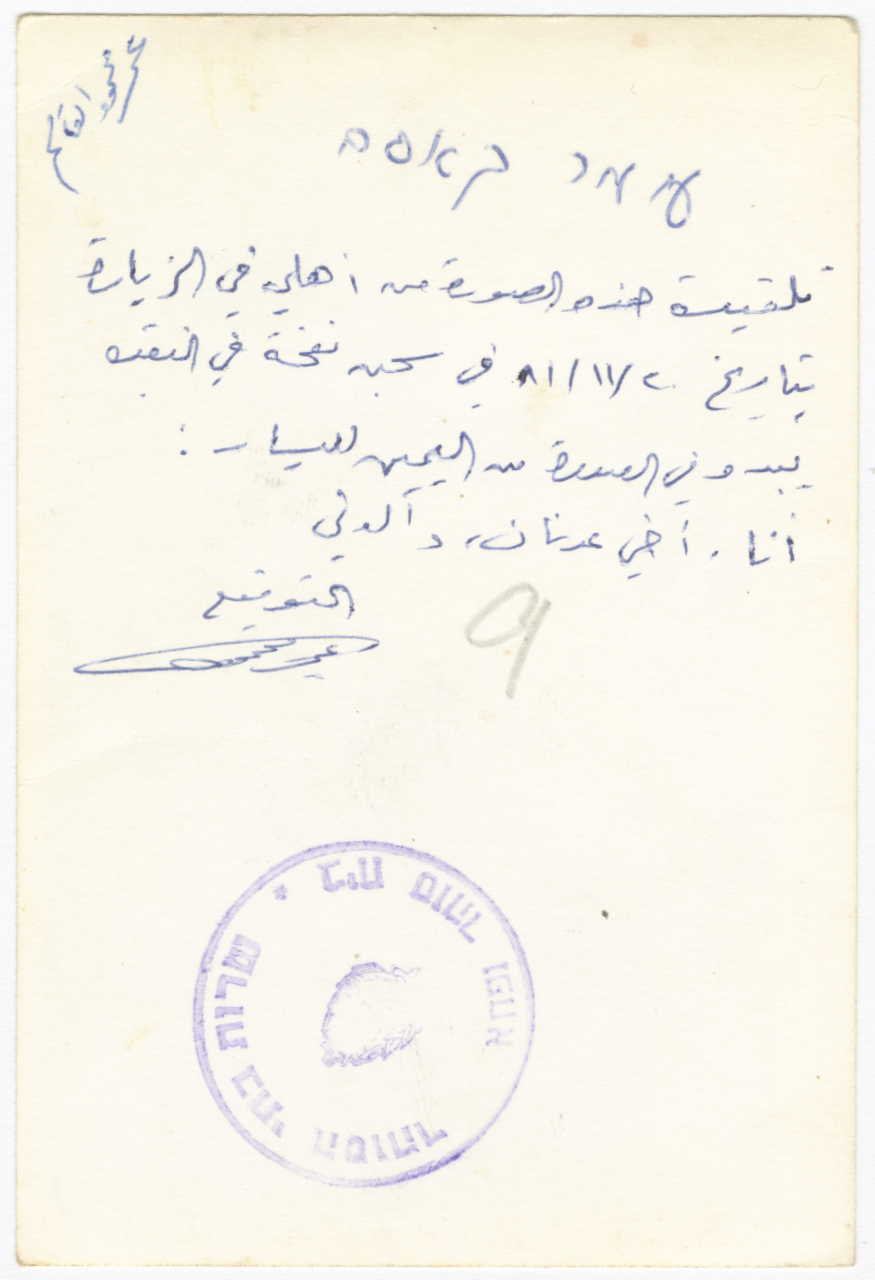 عمر محمود القاسم
تلقيت هذه الصورة من أهلي في الزيارة
بتاريخ ٨١/١١/٢٠ في سجن نفحة في النقب
يبدو في الصورة من اليمين لليسار :
أنا، أخي عدنان، و
التوقيع
عمر محمود
9
שרות בתי הסוהר